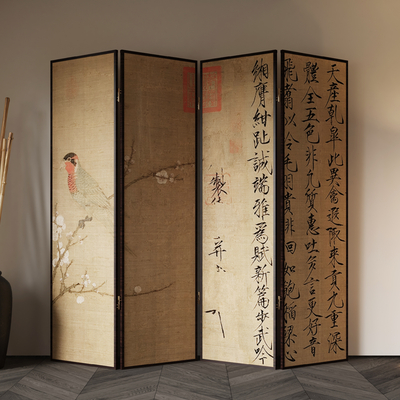 天產乾皋此異禽遐陬來貢九重深
體全五色非凡質惠吐多言更好音
飛翥似怜毛羽貴徘徊如飽稻粱心
緗膺紺趾誠端雅為賦新篇步武吟